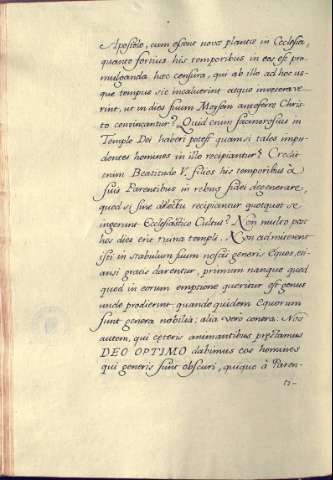 Apostolo, cum essent novæ plantæ in Ecclesia,
quanto fortius his temporibus in eos est pro
mulganda hæc censura, qui ab illo ad hoc us-
que tempus sic incaluerint atque inveterave-
rint, ut in dies suum Moysem anteferre Chris-
to convincantur? Quid enim facinorosius in
Templo Dei haberi potest quam si tales impu-
dentes homines in illo recipiantur? Credit
enim Beatitudo V. filios his temporibus a
suis Parentibus in rebus fidei degenerare,
quod si sine delectu recipiantur quotquot se
ingerunt Ecclesiastico Cultui? Non multo pos
hos dies erit ruina templi. Non admitterent
isti in stabulum suum nescii generis equos, et-
ansi gratis darentur, primum nanque quod
quod in eorum emptione queritur est genus
unde prodierint; quando quidem Equorum
sunt genera nobilia; alia vero
autem, qui cæteris animantibus præstamus
DEO OPTIMO dabimus eos homines
qui generis sunt obscuri, quique à Paren-
ti-